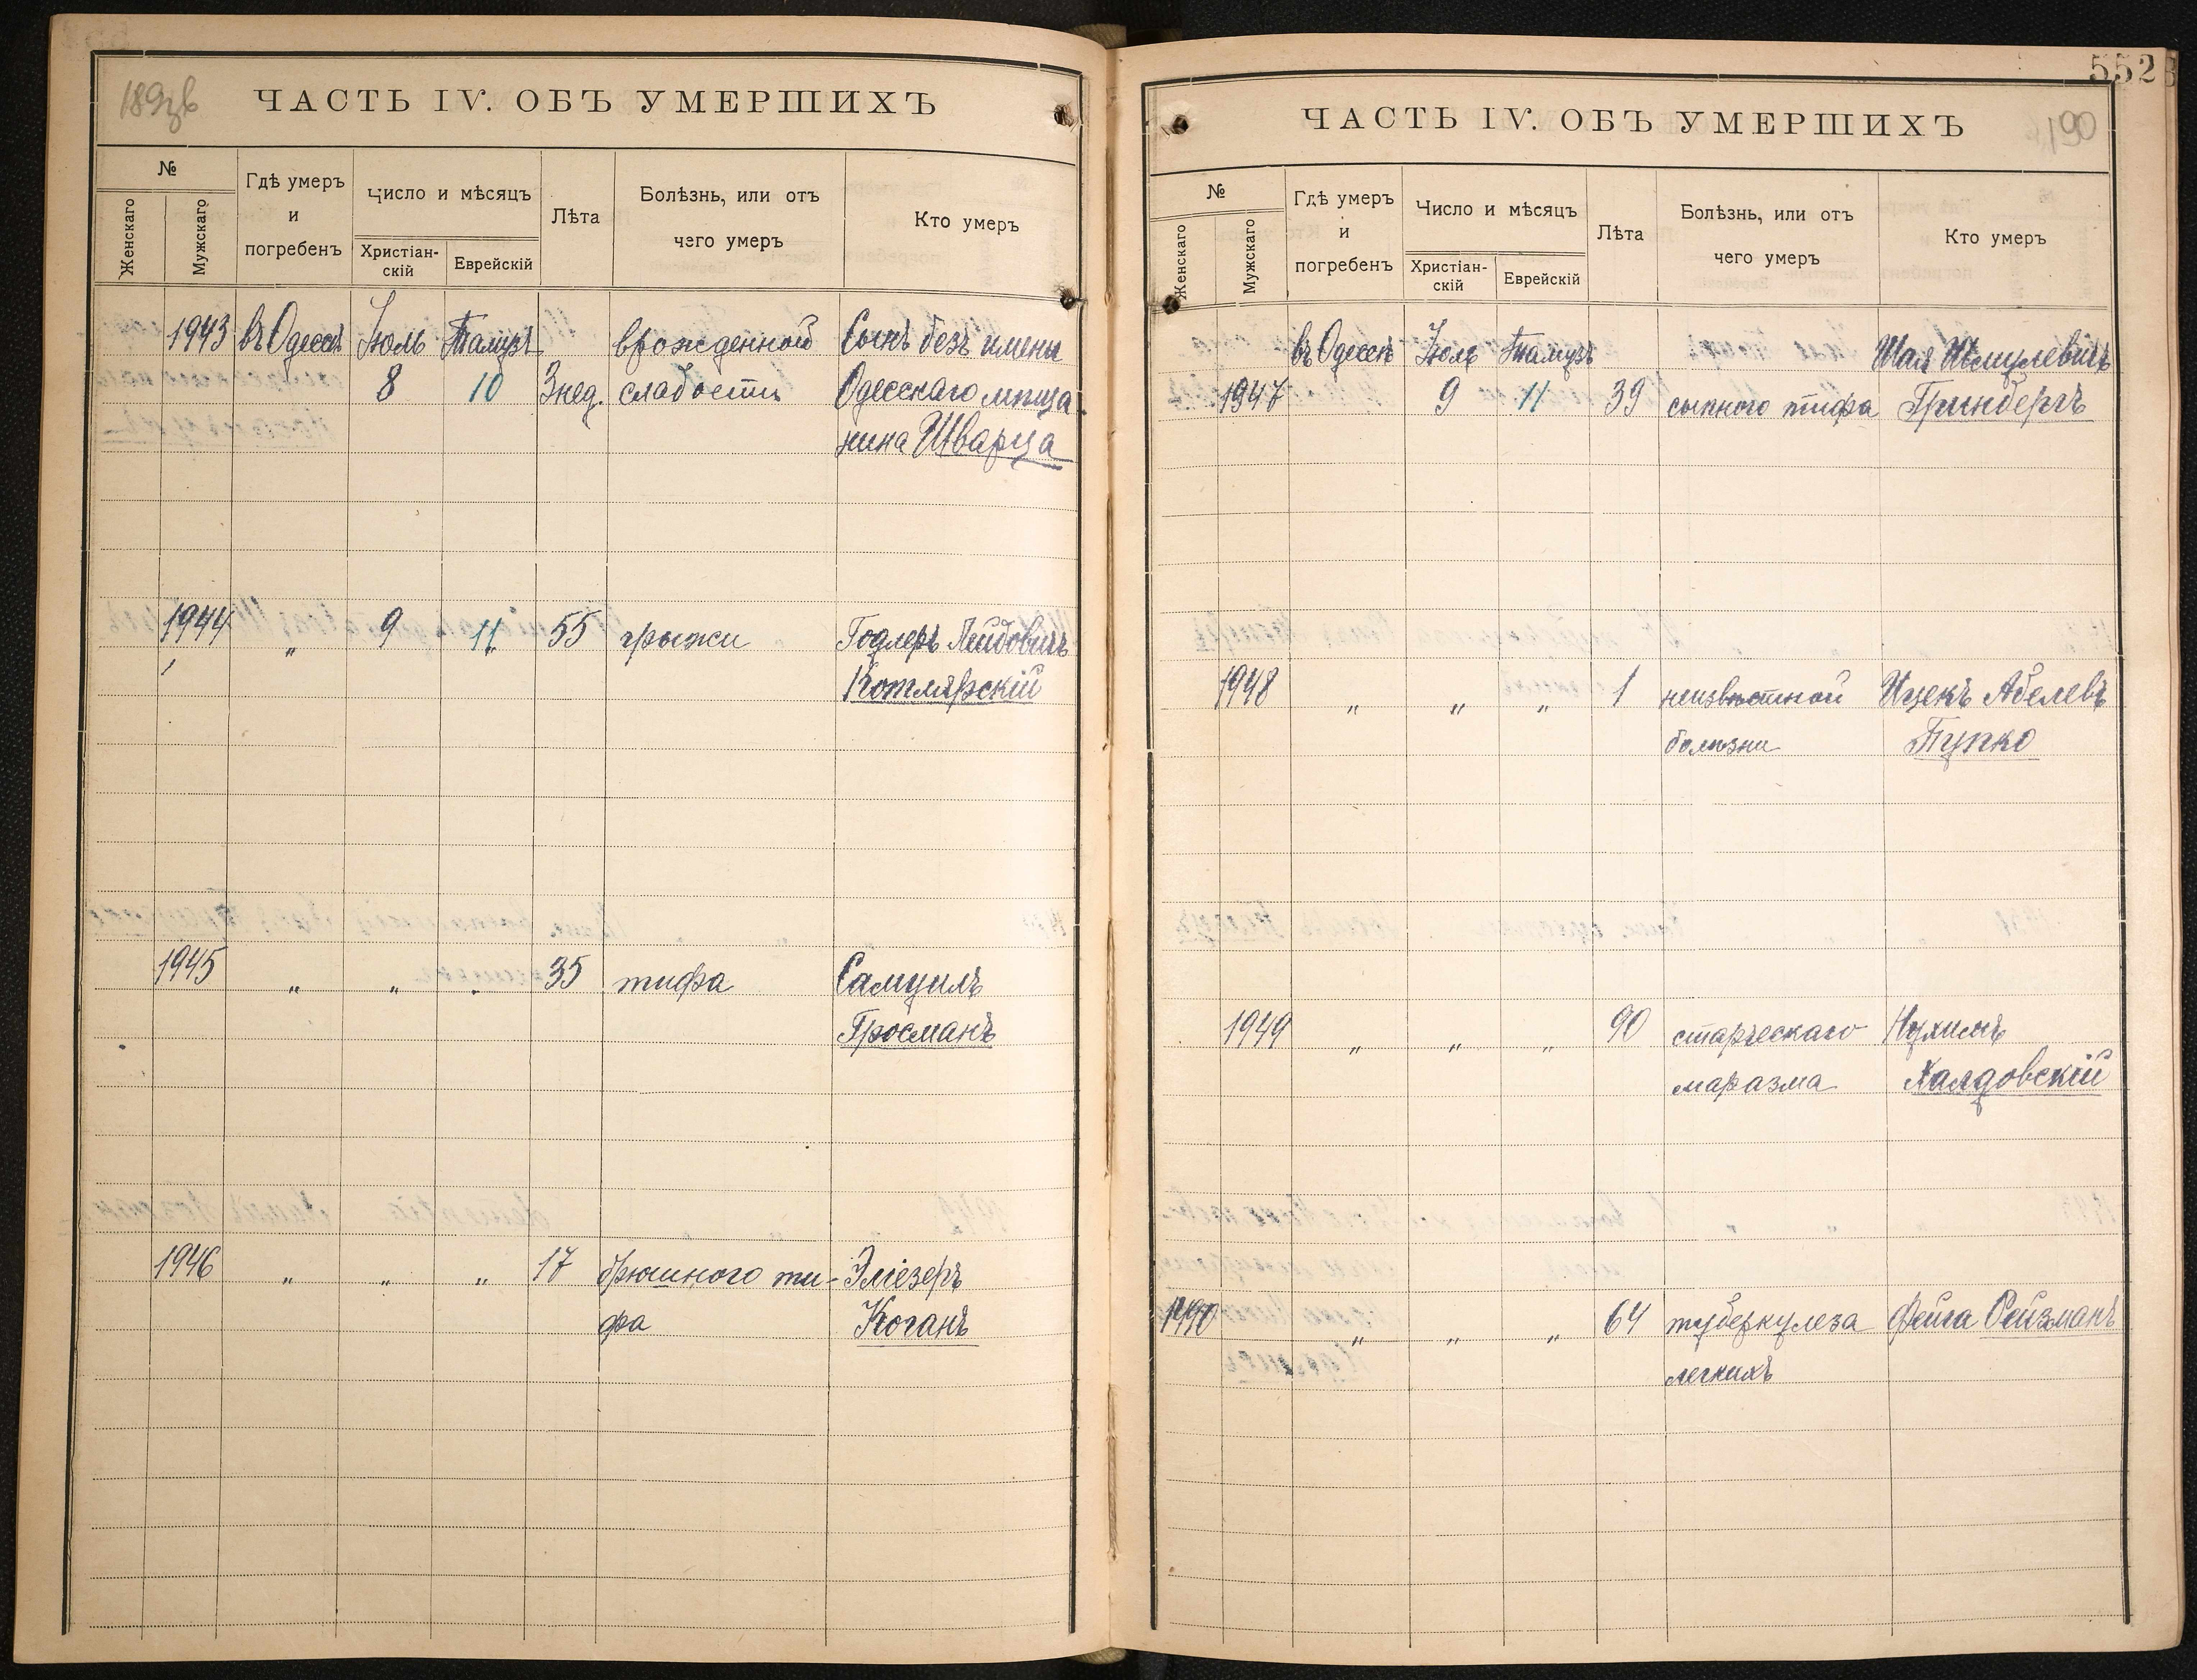 189об
ЧАСТЬ IV. ОБЪ УМЕРШИХЪ
№
Женскаго
Мужскаго
Гдѣ умеръ
и
погребенъ
Число и мѣсяцъ
Христіан-
скій
Еврейскій
Лѣта
Болѣзнь, или отъ
чего умеръ
Кто умеръ
1943 въ Одессѣ Іюль Тамузъ врожденной Сынъ безъ имены
8 10 3 нед. слабости Одесскаго мѣща-
нина Шварца
1944 " 9 11 55 грыжи Годлеръ Лейбовичъ
Котлярскій
1945 " " " 35 тифа Самуилъ
Гросманъ
1946 " " " 17 брюшного ти- Эліезеръ
фа Коганъ
552
ЧАСТЬ IV. ОБЪ УМЕРШИХЪ
190
№
Женскаго
Мужскаго
Гдѣ умеръ
и
погребенъ
Число и мѣсяцъ
Христіан-
скій
Еврейскій
Лѣта
Болѣзнь, или отъ
чего умеръ
Кто умеръ
въ Одессѣ Іюль Тамузъ Шая Шмулевичъ
1947 9 11 39 сыпного тифа Гринбергъ
1948 " " " 1 неизвѣстной Ицекъ Абелевъ
болѣзни Пупко
1949 " " " 90 старческаго Нухимъ
маразма Халдовскій
" " " 64 туберкулеза Фейга Рейзманъ
легкихъ